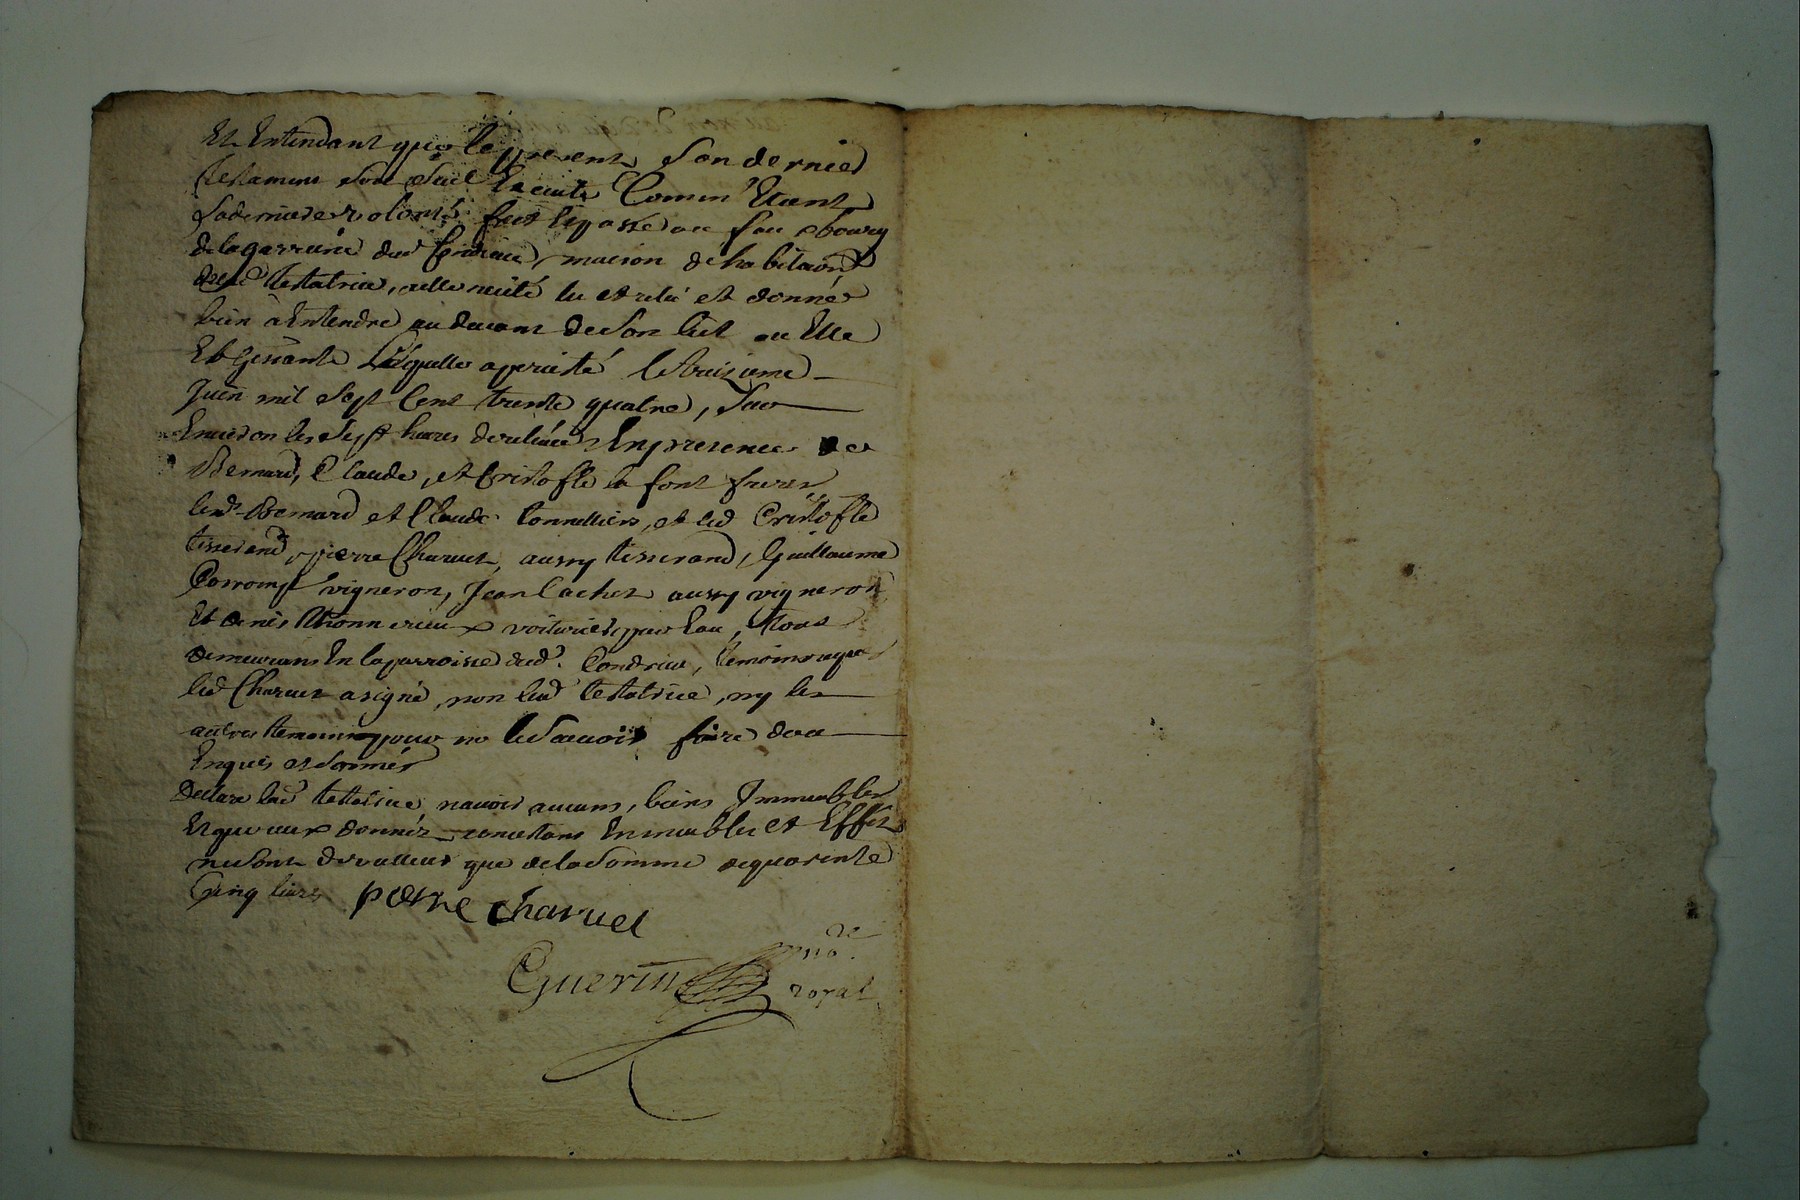 Et Entendant que le present son dernier
testament soit seul Execute Comm' Etant
sa derniere volonté fait et passé au faux bourg
de la garenne dud Condrieu, maison dhabitaõn
de lad testatrice, a elle recité lu et relû et donné
bien a Entendre au devant de son lict ou Elle
Est Gissante
Juin mil sept Cent trente quatre, sur
Environ les sept heures de relevée En presence de
Bernard, Claude, et Cristofle la font freres
lesd. Bernard et Claude tonnelliers, et led Cristofle
tisserand, pierre Charvet, aussy tisserand, Guillaume
vigneron, Jean Cachet aussy vigneron
Et denis voiturier par Eau, tous
demeurans En la parroisse dud. Condrieu, temoins requis
led Charvet a signé, non lad testatrice, ny les
autres temoins pour ne le sçavoir faire de ce
Enquis et sommés
Declare lad testatrice navoir aucuns, biens Immeubles
Et que ceux donnés consistans En meubles et Effets
ne sont de valleur que de la somme de quarente
Cinq livres pierre charvel
Guerin no.re
royal